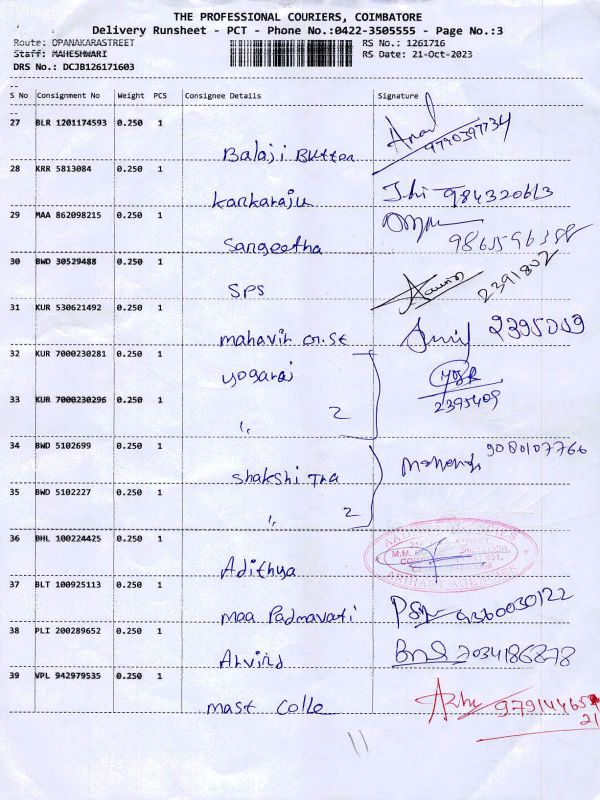 THE PROFESSIONAL COURIERS, COIMBATORE
Delivery Runsheet - PCT - Phone No.:0422-3505555 - Page No.:3
Route: OPANAKARASTREET RS No.: 1261716
Staff: MAHESHWARI RS Date: 21-Oct-2023
DRS No.: DCJB126171603
S No Consignment No Weight PCS Consignee Details Signature
27 BLR 1201174593 0.250 1
Balaji Button
28 KRR 5813084 0.250 1
Kankaraju
29 MAA 862098215 0.250 1
Sangeetha
30 BWD 30529488 0.250 1 2391802
SPS
31 KUR 530621492 0.250 1 2395059
mahavir Gn.St
32 KUR 7000230281 0.250 1
yogaraj
33 KUR 7000230296 0.250 1 2395409
" 2
34 BWD 5102699 0.250 1 9080107766
Shakshi Tra
35 BWD 5102227 0.250 1
" 2
36 BHL 100224425 0.250 1
Adithya
37 BLT 100925113 0.250 1 9360030122
maa Padmavati
38 PLI 200289652 0.250 1 7034186878
Arvind
39 VPL 942979535 0.250 1
mast Colle